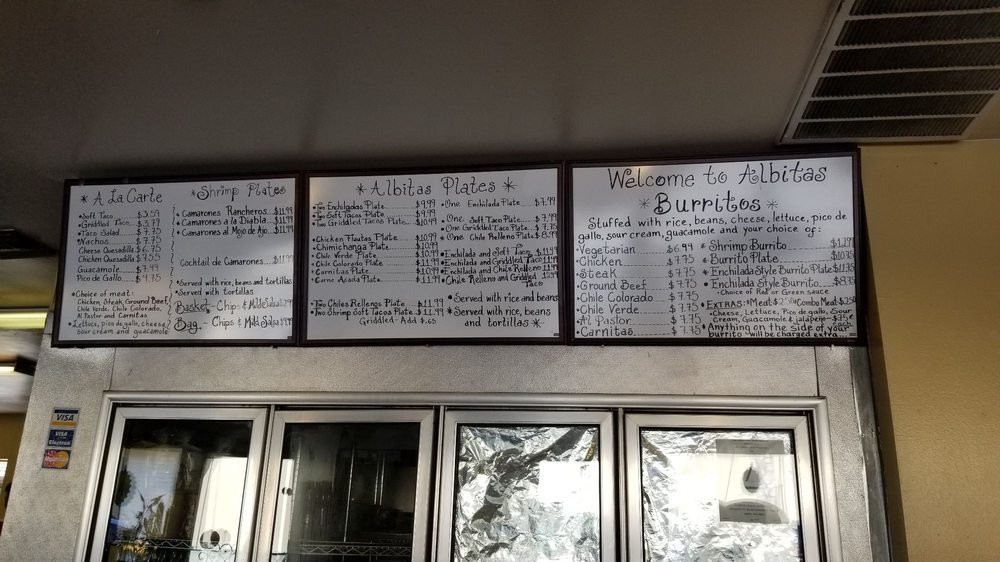 * A La Carte
*Soft Taco $3.59
*Griddled Taco $3.79
*Taco Salad $7.75
*Nachos $7.75
Cheese Quesadilla $6.75
Chicken Quesadilla $
Guacamole $7.99
Pico de Gallo $
*Choice of meat:
Chicken, Steak, Ground Beef,
Chile Verde, Chile Colorado,
Al Pastor and Carnitas
*Lettuce, pico de gallo, cheese,
sour cream and guacamole
*Shrimp Plates
*Camarones Rancheros $11.99
*Camarones a la Diabla $11.99
*Camarones al Mojo de Ajo $11.99
Cocktail de Camarones $11.99
*Served with rice, beans and tortillas
*Served with tortillas
Basket - Chips & Mild Salsa
Bag - Chips & Mild Salsa
* Albitas Plates *
*Two Enchiladas Plate $9.99
*Two Soft Tacos Plate $9.99
*Two Griddled Tacos Plate $10.99
*Chicken Flautas Plate $10.99
*Chimichanga Plate $10.99
*Chile Verde Plate $10.99
*Chile Colorado Plate $11.99
*Carnitas Plate $10.99
*Carne Asada Plate $11.99
*Two Chiles Rellenos Plate $11.99
*Two Shrimp Soft Tacos Plate $11.99
Griddled - Add $.65
*One Enchilada Plate $7.99
*One Soft Taco Plate
*One Griddled Taco Plate
*One Chile Relleno Plate $8.99
*Enchilada and Soft Taco $11.99
*Enchilada and Griddled Taco $11.99
*Enchilada and Chile Relleno
*Chile Relleno and Griddled Taco
*Served with rice and beans
*Served with rice, beans
and tortillas *
Welcome to Albitas
*Burritos*
Stuffed with rice, beans, cheese, lettuce, pico de
gallo, sour cream, guacamole and your choice of:
*Vegetarian $6.99
*Chicken $7.75
*Steak $7.75
*Ground Beef $7.75
*Chile Colorado $7.75
*Chile Verde $7.75
*Al Pastor $7.75
*Carnitas $7.75
*Shrimp Burrito
*Burrito Plate $10.75
*Enchilada Style Burrito Plate $11.75
*Enchilada Style Burrito $8.75
-Choice of Red or Green sauce
*Extras: *Meat *Combo Meat
*Cheese, Lettuce, Pico de gallo, Sour
Cream, Guacamole & jalapeño
*Anything on the side of your
burrito will be charged extra
VISA
VISA
Electron
MasterCard